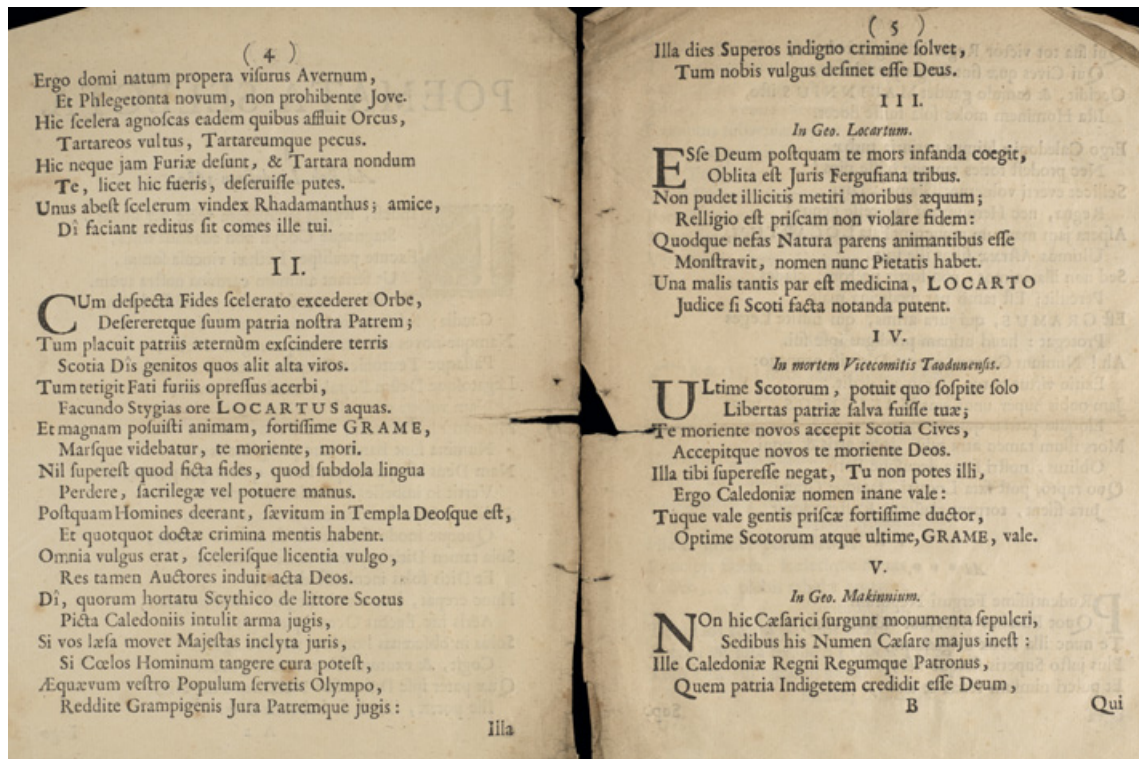 ( 4 )
Ergo domi natum propera viſurus Avernum,
Et Phlegetonta novum, non prohibente Jove.
Hic ſcelera agnoſcas eadem quibus affluit Orcus,
Tartareos vultus, Tartareumque pecus.
Hic neque jam Furiæ deſunt, & Tartara nondum
Te, licet hic fueris, deſeruiſſe putes.
Unus abeſt ſcelerum vindex Rhadamanthus; amice,
Dî faciant reditus ſit comes ille tui.
II.
CUm deſpecta Fides ſcelerato excederet Orbe,
Deſereretque ſuum patria noſtra Patrem;
Tum placuit patriis æternùm exſcindere terris
Scotia Dîs genitos quos alit alta viros.
Tum tetigit Fati furiis opreſſus acerbi,
Facundo Stygias ore LOCARTUS aquas.
Et magnam poſuiſti animam, fortiſſime GRAME,
Marſque videbatur, te moriente, mori.
Nil ſupereſt quod ficta fides, quod ſubdola lingua
Perdere, ſacrilegæ vel potuere manus.
Poſtquam Homines deerant, ſævitum in Templa Deoſque eſt,
Et quotquot doctæ crimina mentis habent.
Omnia vulgus erat, ſceleriſque licentia vulgo,
Res tamen Auctores induit acta Deos.
Dî, quorum hortatu Scythico de littore Scotus
Picta Caledoniis intulit arma jugis,
Si vos læſa movet Majeſtas inclyta juris,
Si Cœlos Hominum tangere cura poteſt,
Æquævum veſtro Populum ſervetis Olympo,
Reddite Grampigenis Jura Patremque jugis:
Illa
( 5 )
Illa dies Superos indigno crimine ſolvet,
Tum nobis vulgus deſinet eſſe Deus.
III.
In Geo. Locartum.
ESſe Deum poſtquam te mors infanda coegit,
Oblita eſt Juris Ferguſiana tribus.
Non pudet illicitis metiri moribus æquum;
Relligio eſt priſcam non violare fidem:
Quodque nefas Natura parens animantibus eſſe
Monſtravit, nomen nunc Pietatis habet.
Una malis tantis par eſt medicina, LOCARTO
Judice ſi Scoti facta notanda putent.
IV.
In mortem Vicecomitis Taodunenſis.
ULtime Scotorum, potuit quo ſoſpite ſolo
Libertas patriæ ſalva fuiſſe tuæ;
Te moriente novos accepit Scotia Cives,
Accepitque novos te moriente Deos.
Illa tibi ſupereſſe negat, Tu non potes illi,
Ergo Caledoniæ nomen inane vale:
Tuque vale gentis priſcæ fortiſſime ductor,
Optime Scotorum atque ultime, GRAME, vale.
V.
In Geo. Makinnium.
NOn hic Cæſarici ſurgunt monumenta ſepulcri,
Sedibus his Numen Cæſare majus ineſt:
Ille Caledoniæ Regni Regumque Patronus,
Quem patria Indigetem credidit eſſe Deum,
B
Qui